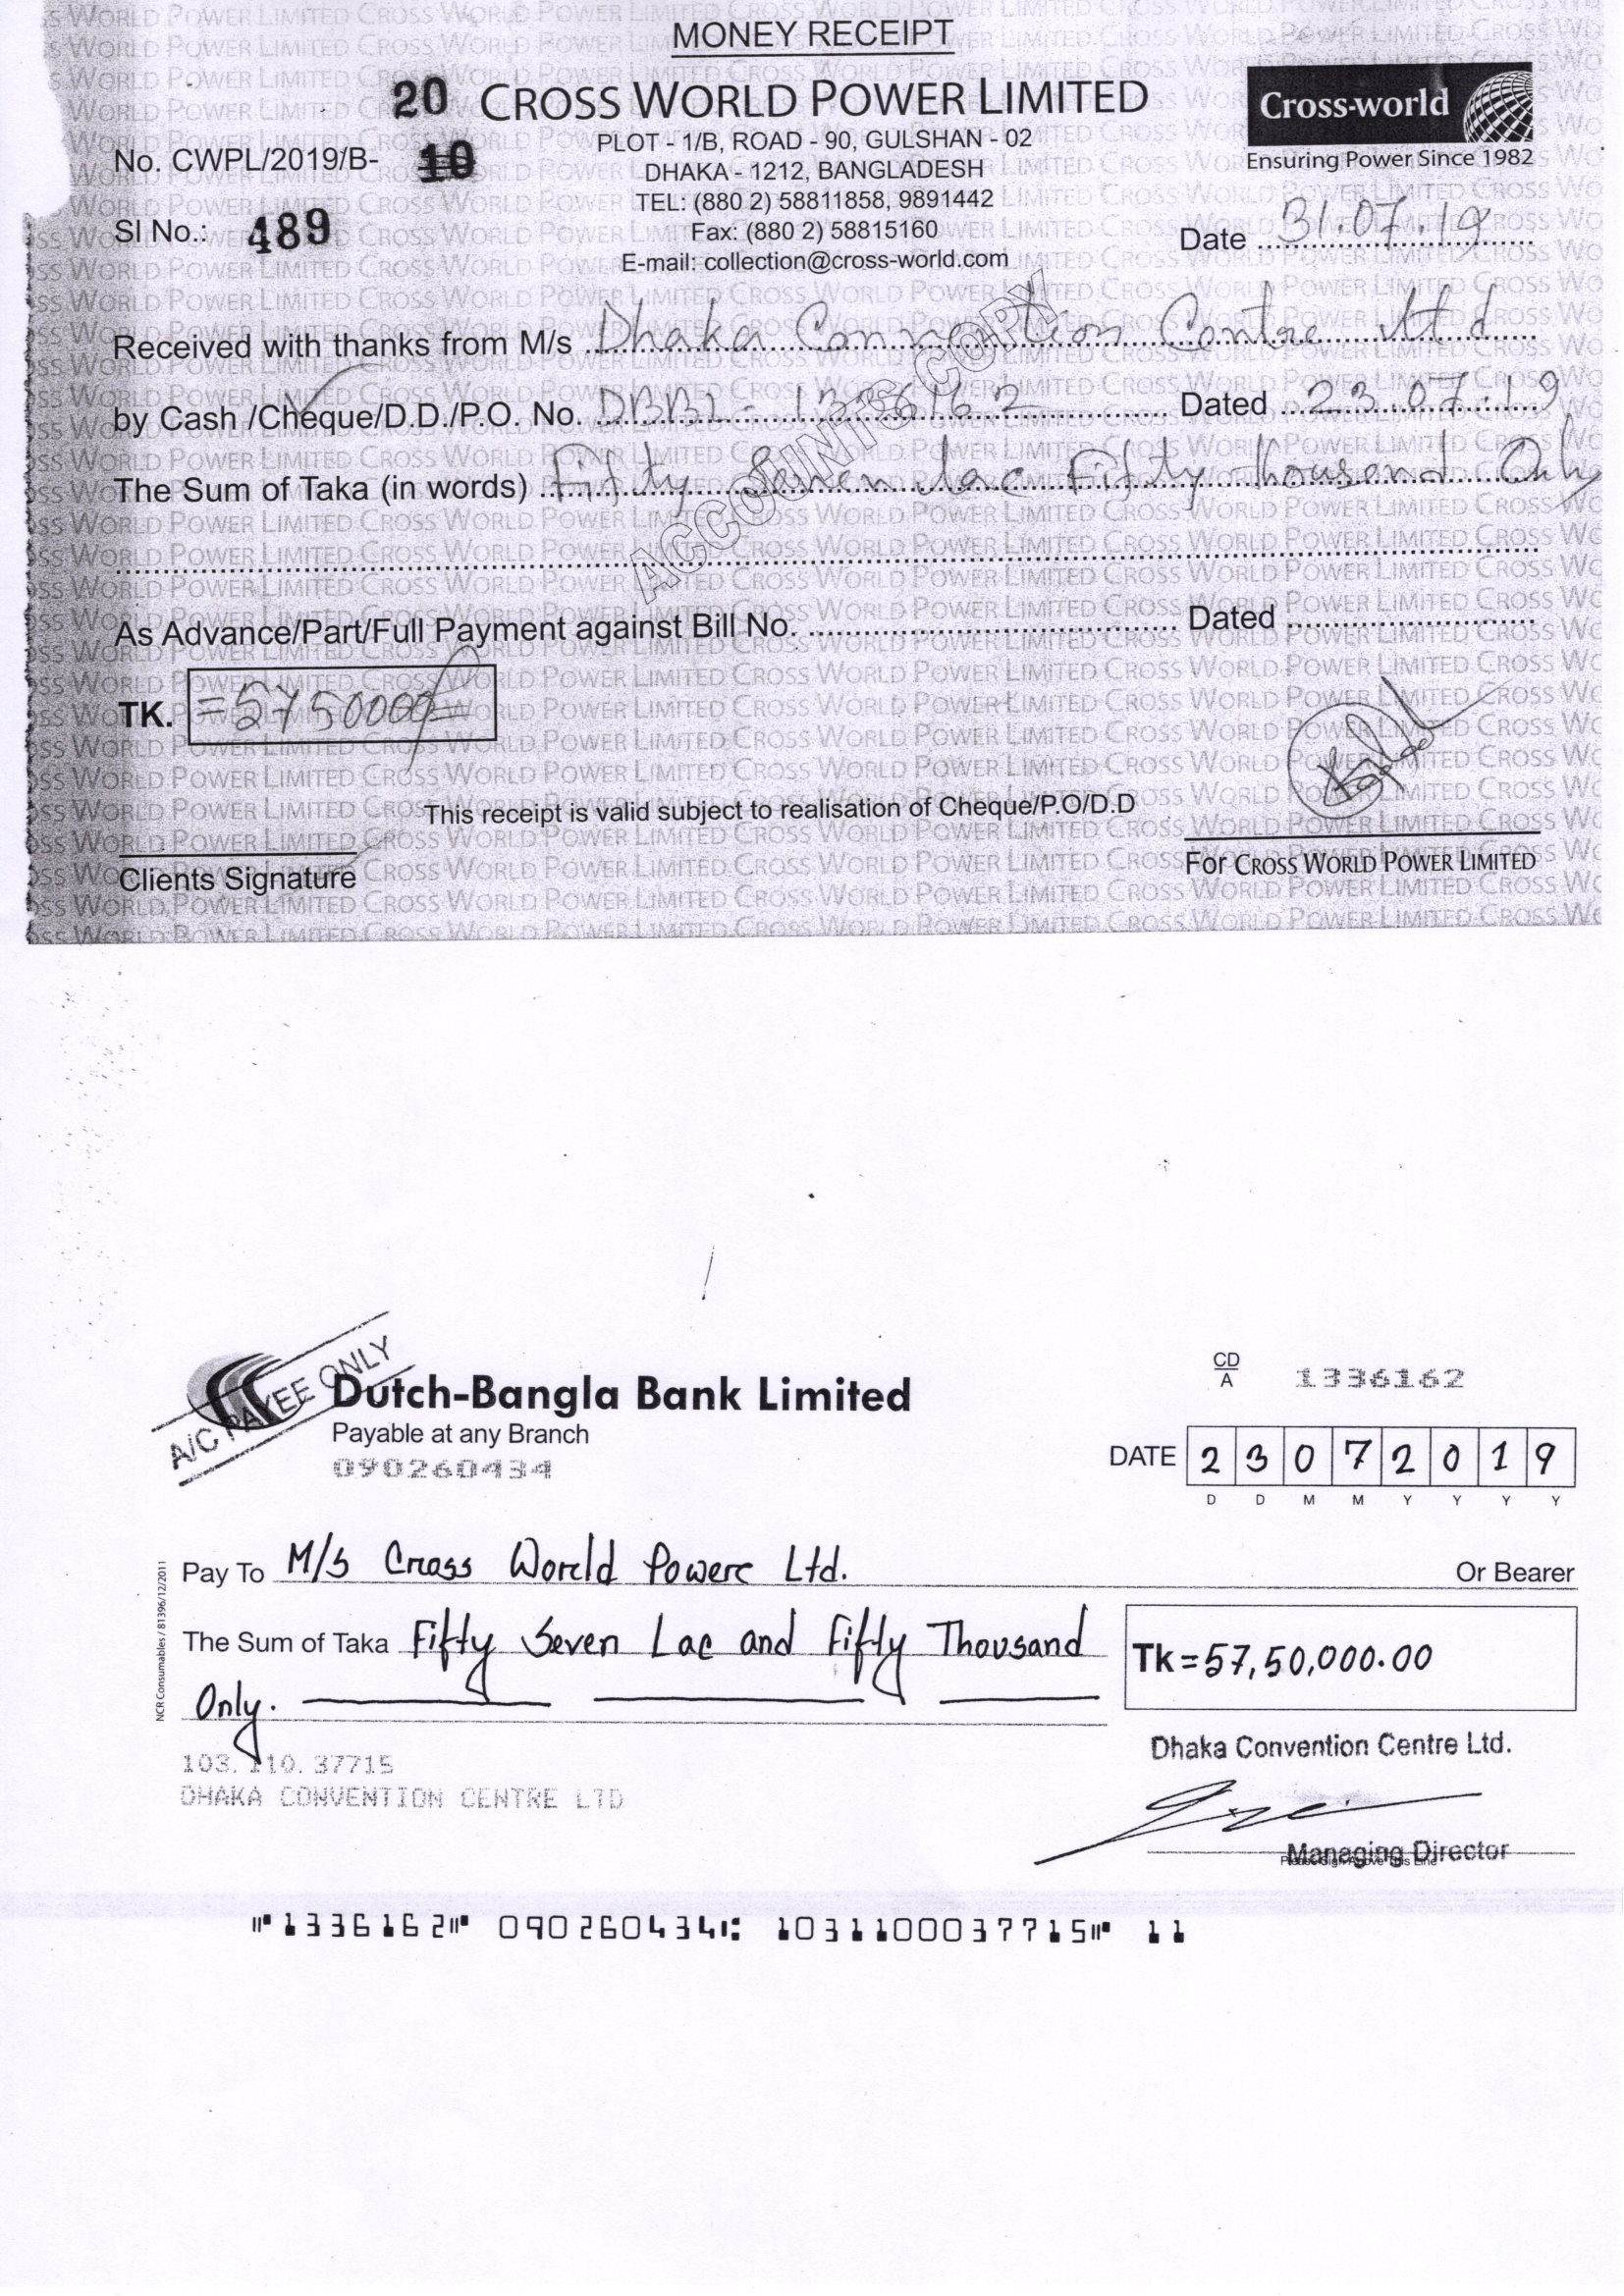 MONEY RECEIPT
20 CROSS WORLD POWER LIMITED
Cross-world
Ensuring Power Since 1982
PLOT - 1/B, ROAD - 90, GULSHAN - 02
No. CWPL/2019/B- 10
DHAKA - 1212, BANGLADESH
TEL: (880 2) 58811858, 9891442
SI No.: 489
Fax: (880 2) 58815160
Date 31.07.19
E-mail: collection@cross-world.com
Received with thanks from M/s Dhaka Convention Centre Ltd
by Cash /Cheque/D.D./P.O. No. DBBL - 1336162 Dated 23.07.19
The Sum of Taka (in words) Fifty Seven lac Fifty thousend Only
ACCOUNTS COPY
As Advance/Part/Full Payment against Bill No. Dated
TK. =5750000/=
This receipt is valid subject to realisation of Cheque/P.O/D.D
Clients Signature
For CROSS WORLD POWER LIMITED
A/C PAYEE ONLY
Dutch-Bangla Bank Limited
Payable at any Branch
090260434
CD
A
1336162
DATE 2 3 0 7 2 0 1 9
D D M M Y Y Y Y
Pay To M/S Cross World Power Ltd. Or Bearer
The Sum of Taka Fifty Seven Lac and Fifty Thousand
Only.
Tk=57,50,000.00
NCR Consumables / 81396/12/2011
103. 110. 37715
DHAKA CONVENTION CENTRE LTD
Dhaka Convention Centre Ltd.
Managing Director
Please Sign Above This Line
⑈1336162⑈ 090260434⑆ 1031100037715⑈ 11